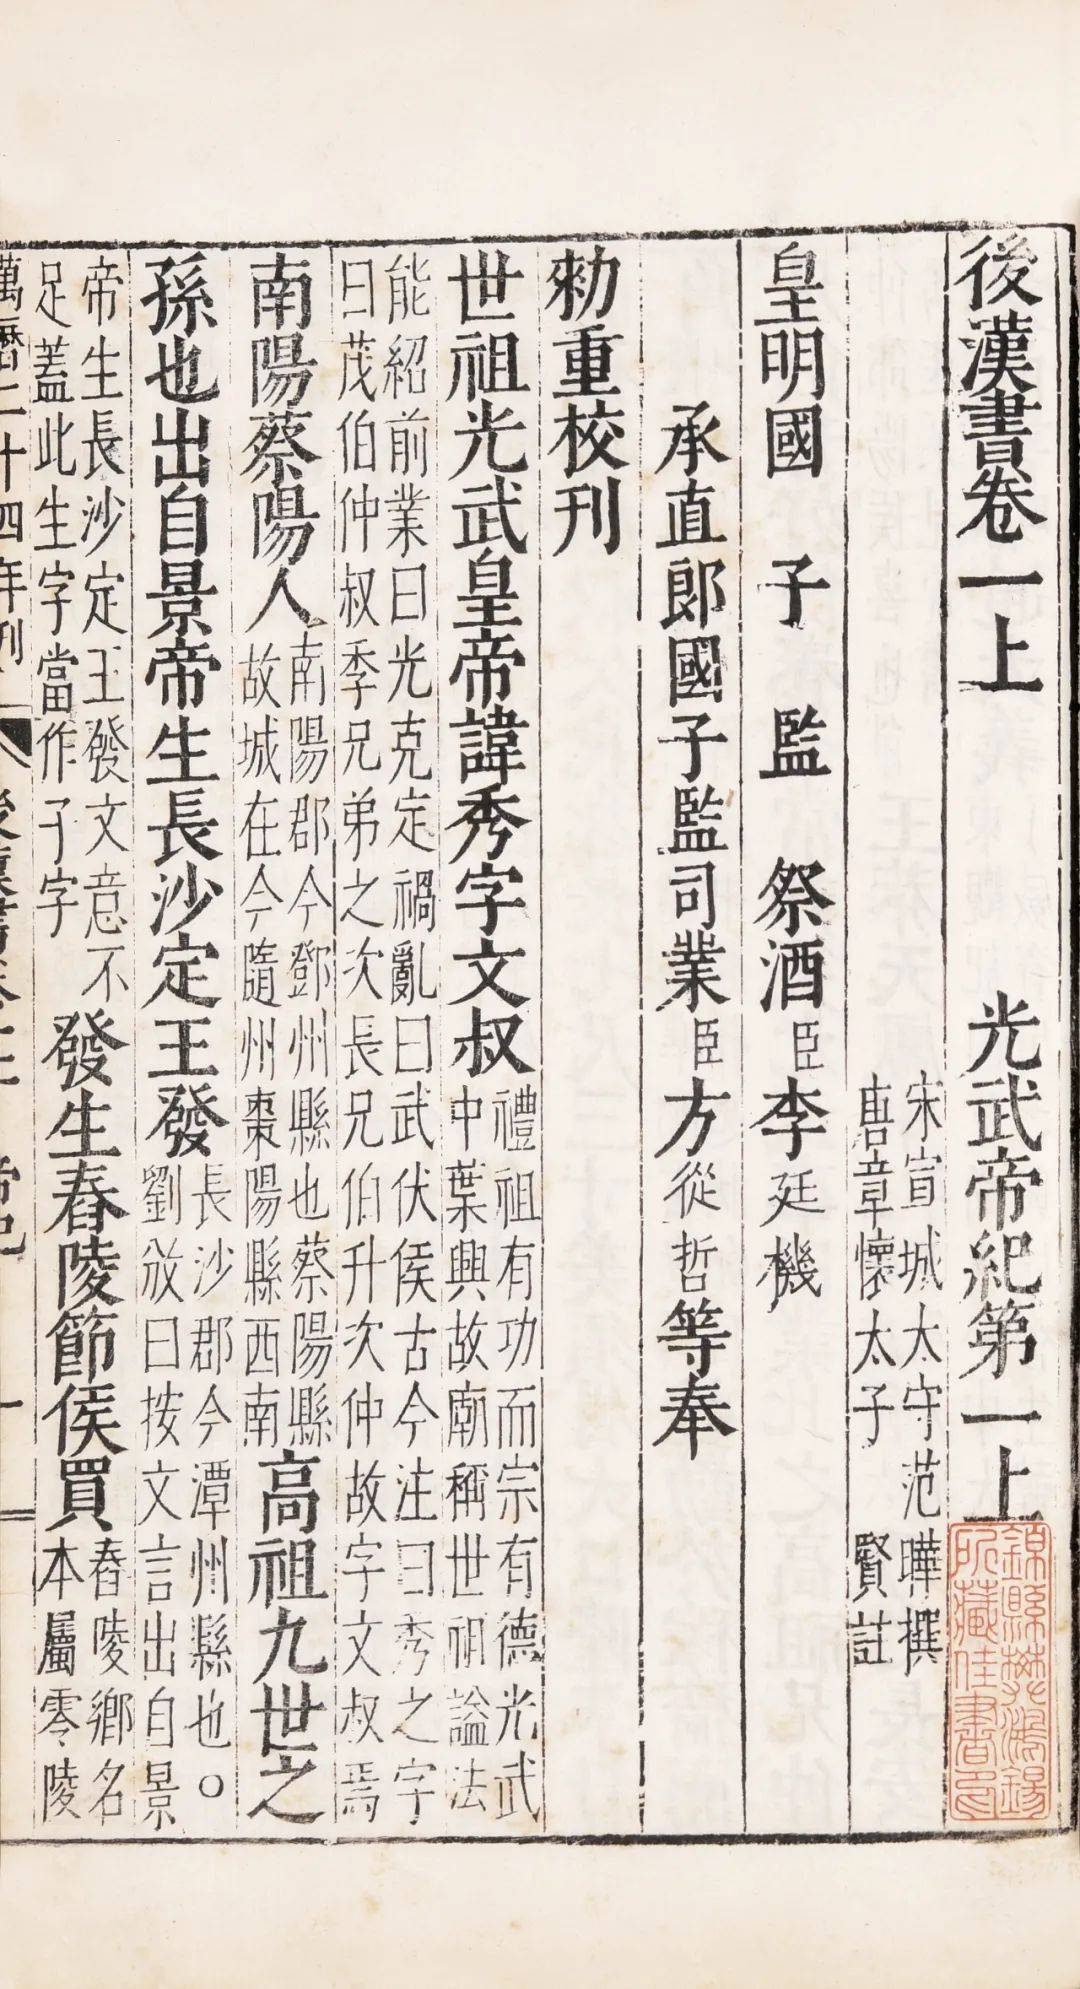 後漢書卷一上　光武帝紀第一上
宋宣城太守范曄撰
唐章懷太子賢註
皇明國子監祭酒臣李廷機
承直郎國子監司業臣方從哲等奉
勑重校刊
世祖光武皇帝諱秀字文叔
禮祖有功而宗有德光武
中葉興故廟稱世祖謚法
能紹前業曰光克定禍亂曰武伏侯古今注曰秀之字
曰茂伯仲叔季兄弟之次長兄伯升次仲故字文叔焉
南陽蔡陽人
南陽郡今鄧州縣也蔡陽縣
故城在今隨州棗陽縣西南
高祖九世之
孫也出自景帝生長沙定王發
長沙郡今潭州縣也○
劉攽曰按文言出自景
帝生長沙定王發文意不
足蓋此生字當作子字
發生舂陵節侯買
舂陵鄉名
本屬零陵
萬曆二十四年刊
錦縣樊漪錫
所藏佳書印